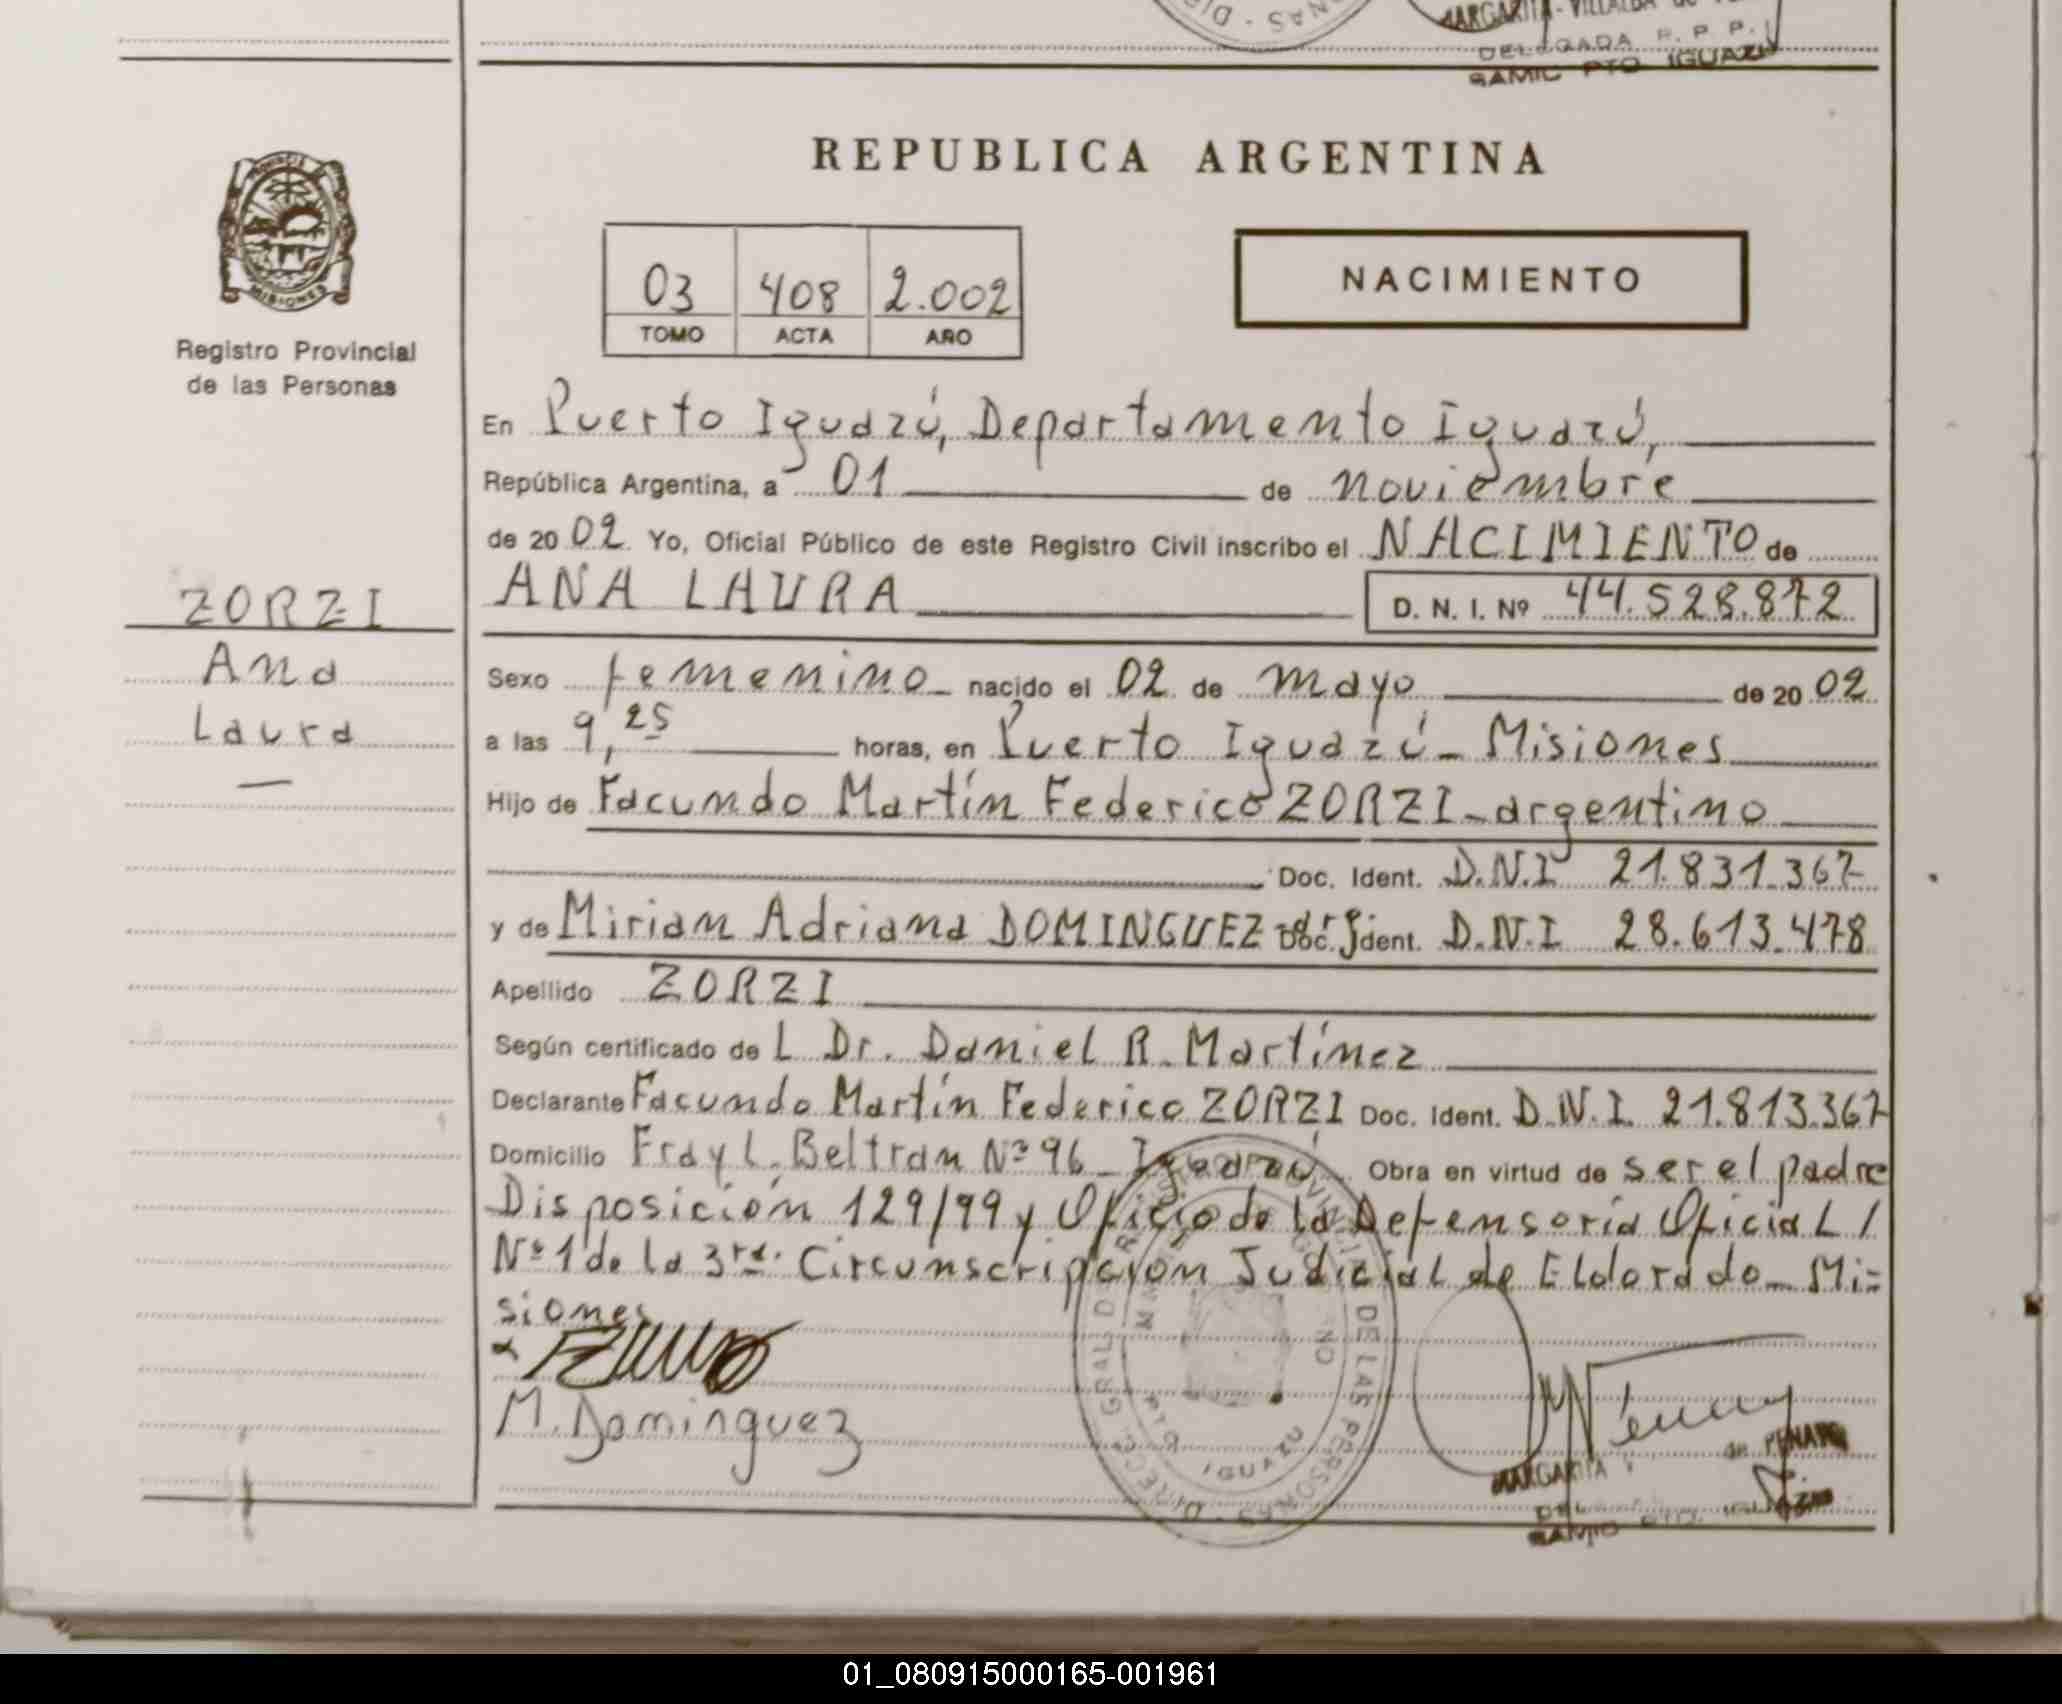 DELEGADA R. P. P.
SAMIC PTO. IGUAZU
REPUBLICA ARGENTINA
MISIONES
Registro Provincial
de las Personas
03 408 2.002
TOMO ACTA AÑO
NACIMIENTO
En Puerto Iguazú, Departamento Iguazú,
República Argentina, a 01 de noviembre
de 2002 Yo, Oficial Público de este Registro Civil inscribo el NACIMIENTO de
ANA LAURA D. N. I. Nº 44.528.872
ZORZI
Ana
Laura
Sexo femenino nacido el 02 de mayo de 2002
a las 9,25 horas, en Puerto Iguazú - Misiones
Hijo de Facundo Martín Federico ZORZI - argentino
Doc. Ident. D.N.I 21.831.367
y de Miriam Adriana DOMINGUEZ - arg. Doc. Ident. D.N.I 28.613.478
Apellido ZORZI
Según certificado de L Dr. Daniel R. Martínez
Declarante Facundo Martín Federico ZORZI Doc. Ident. D.N.I. 21.813.367
Domicilio Fray L. Beltran Nº 96 - Iguazú Obra en virtud de ser el padre
Disposición 129/99 y Oficio de la Defensoría Oficial /
Nº 1 de la 3ra. Circunscripción Judicial de Eldorado - Mi=
siones
M. Dominguez
DE LAS PERSONAS
IGUAZU
MARGARITA de PENAYO
SAMIC PTO. IGUAZU
01_080915000165-001961